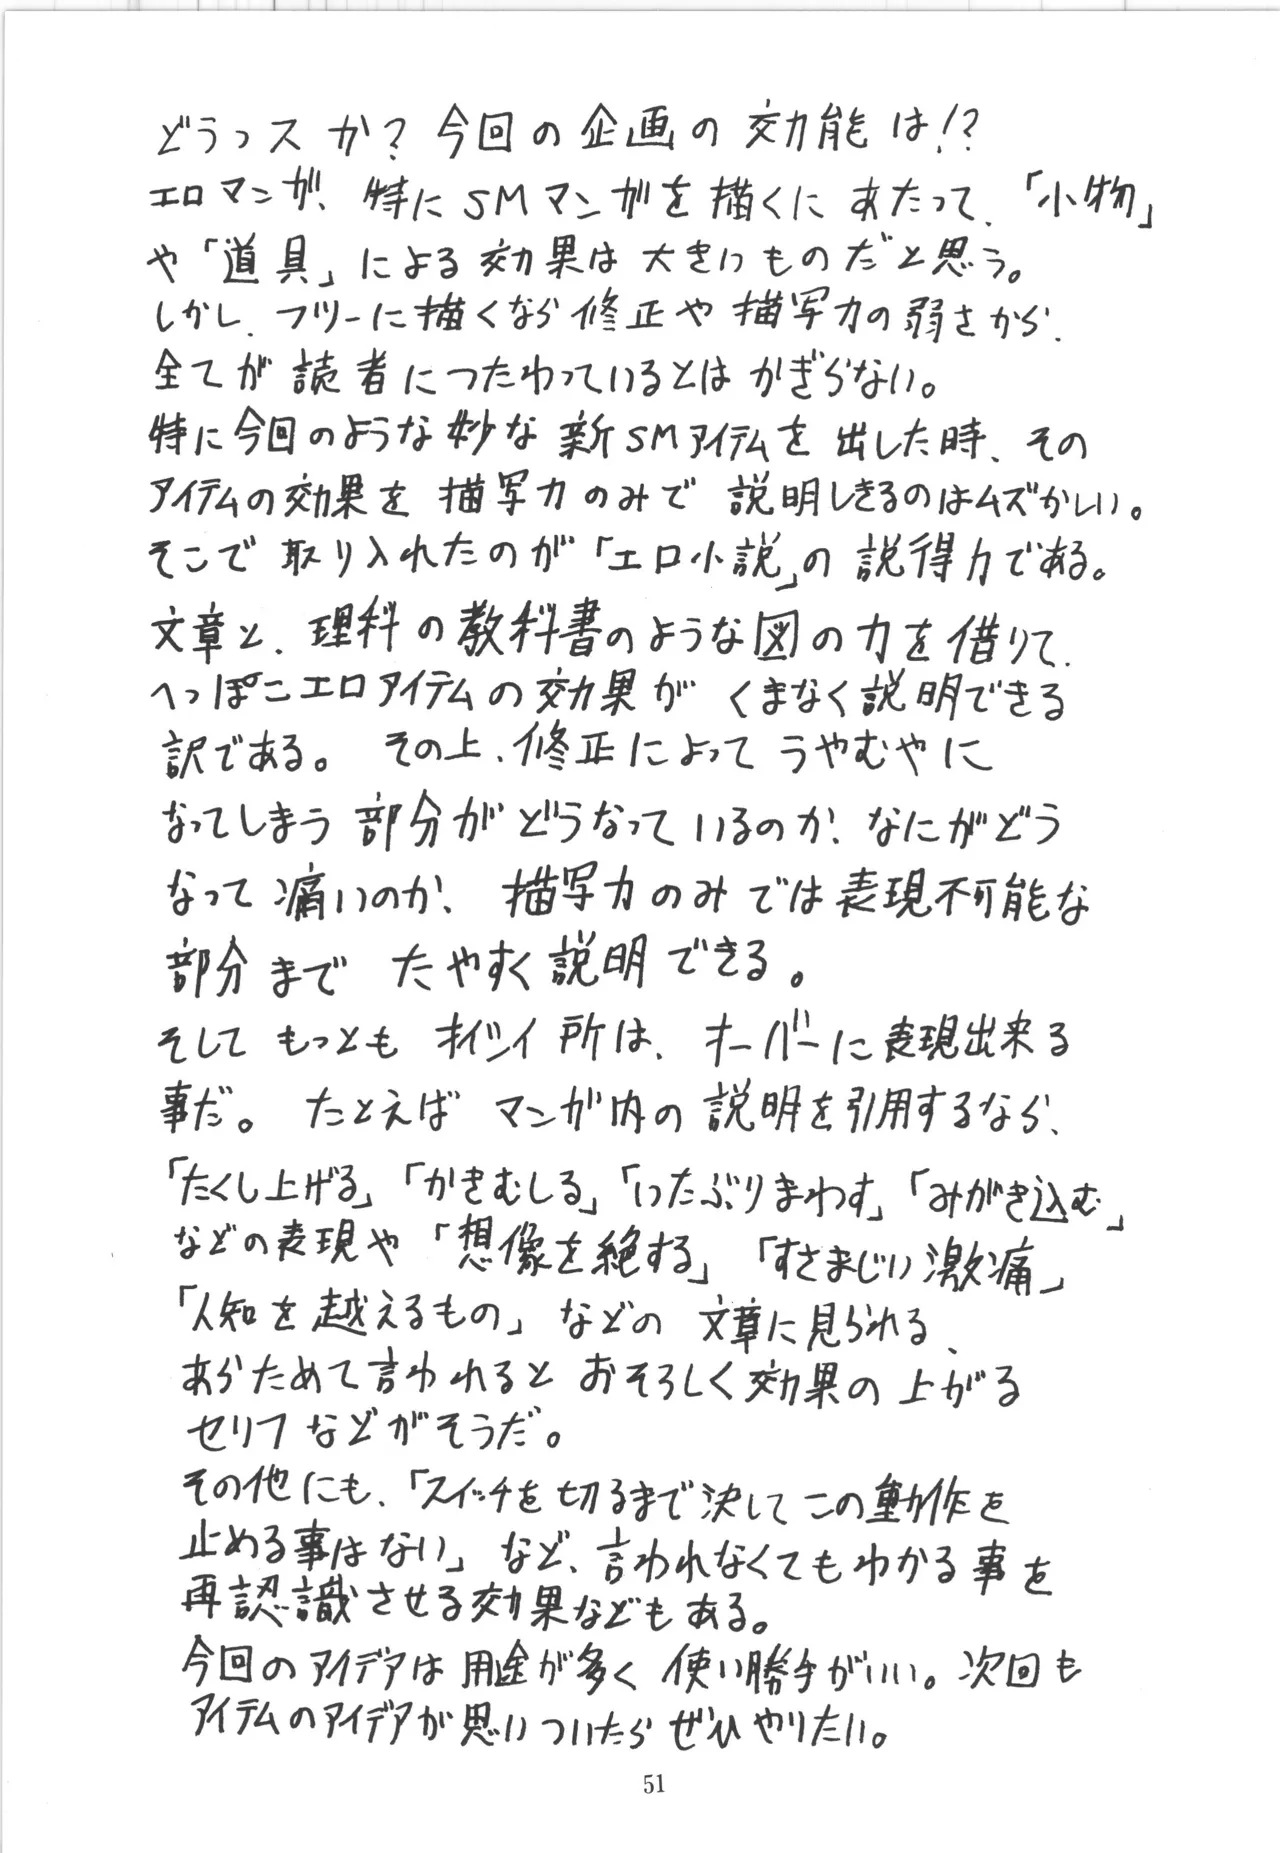 どうっスか?今回の企画の効能は!?
エロマンガ、特にSMマンガを描くにあたって、「小物」
や「道具」による効果は大きいものだと思う。
しかし、フツーに描くなら修正や描写力の弱さから、
全てが読者につたわっているとはかぎらない。
特に今回のような妙な新SMアイテムを出した時、その
アイテムの効果を描写力のみで説明しきるのはムズかしい。
そこで取り入れたのが「エロ小説」の説得力である。
文章と、理科の教科書のような図の力を借りて、
へっぽこエロアイテムの効果がくまなく説明できる
訳である。その上、修正によってうやむやに
なってしまう部分がどうなっているのか、なにがどう
なって痛いのか、描写力のみでは表現不可能な
部分までたやすく説明できる。
そしてもっともオイシイ所は、オーバーに表現出来る
事だ。たとえばマンガ内の説明を引用するなら、
「たくし上げる」「かきむしる」「いたぶりまわす」「みがき込む」
などの表現や「想像を絶する」「すさまじい激痛」
「人知を越えるもの」などの文章に見られる、
あらためて言われるとおそろしく効果の上がる
セリフなどがそうだ。
その他にも、「スイッチを切るまで決してこの動作を
止める事はない」など、言われなくてもわかる事を
再認識させる効果などもある。
今回のアイデアは用途が多く使い勝手がいい。次回も
アイテムのアイデアが思いついたらぜひやりたい。
51